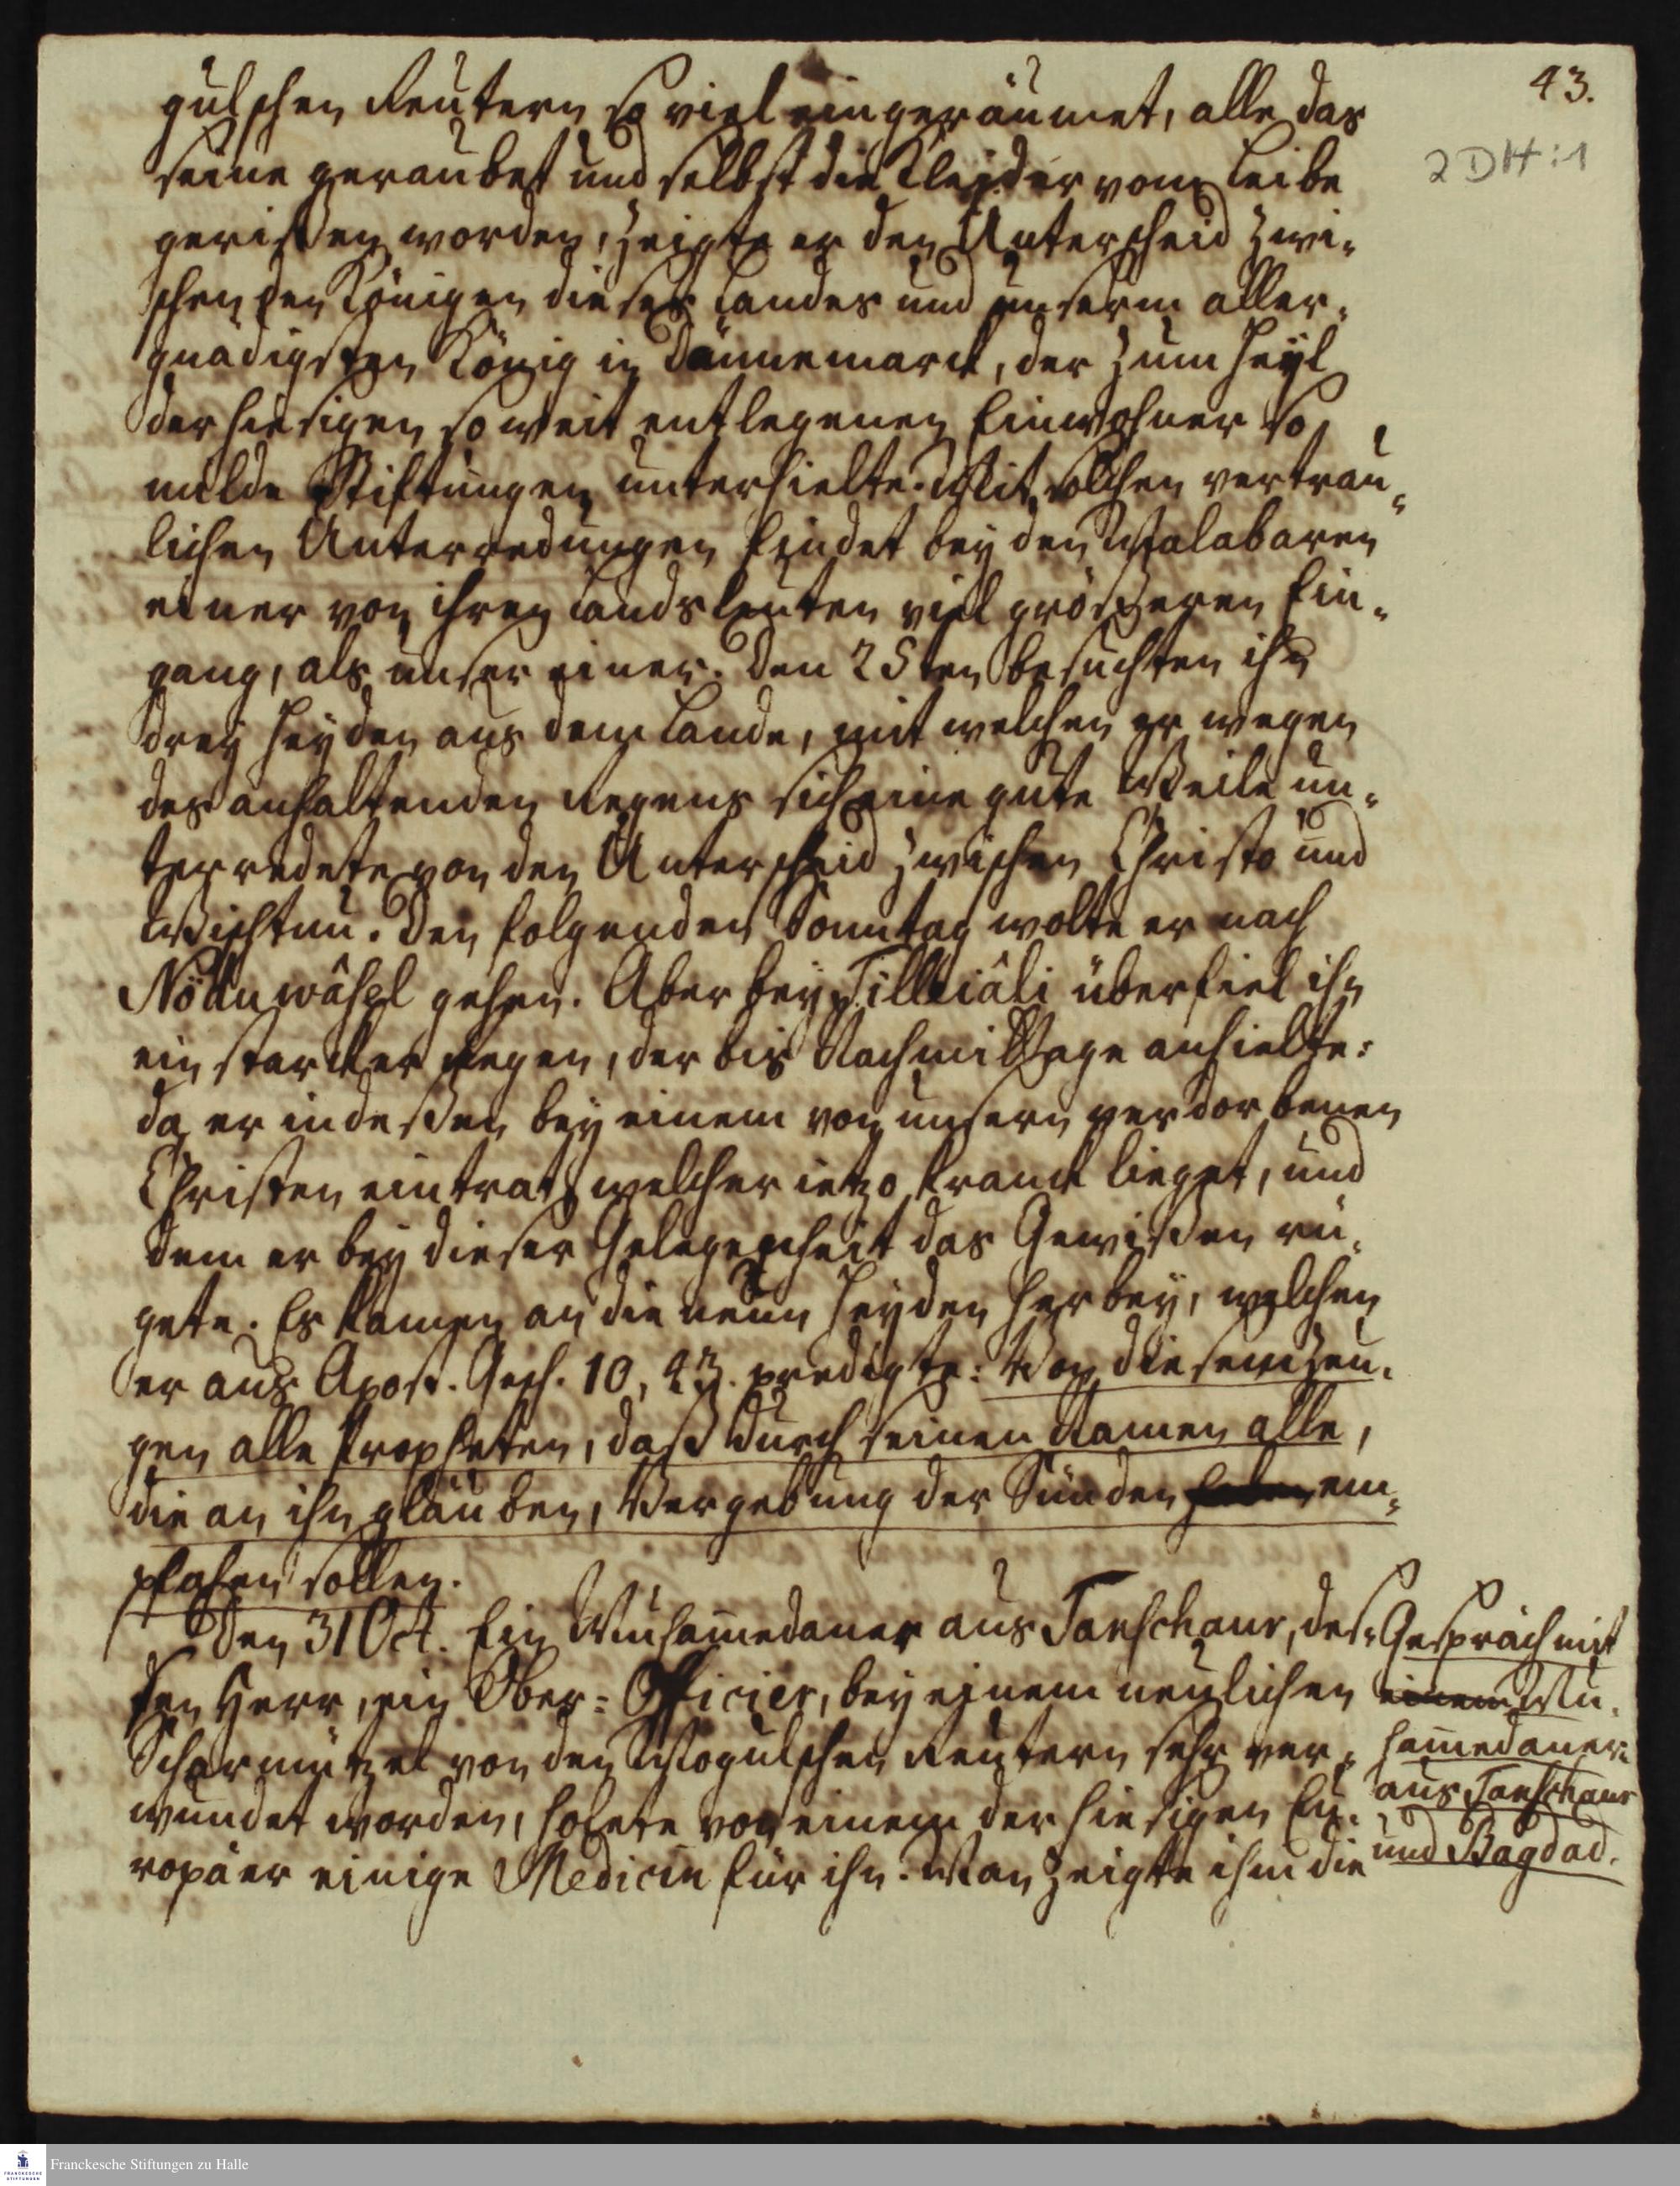 43.
2 DH:1
gulschen Reutern so viel eingeräumet, alle das
seine geraubet und selbst die Kleider vom Leibe
gerißen worden, zeigte er den Unterscheid zwi-
schen den Königen dieses Landes und unserm aller-
gnädigsten König in Dännemarck, der zum Heyl
der hiesigen so weit entlegenen Einwohner so
milde Stiftungen unterhielte. Mit solchen vertrau-
lichen Unterredungen findet bey den Malabaren
einer von ihren Landsleuten viel größeren Ein-
gang, als unser einer. Den 25ten besuchten ihn
drey Heyden aus dem Lande, mit welchen er wegen
des anhaltenden Regens sich eine gute Weile un-
terredete von den Unterscheid zwischen Christo und
Wischtnu. Den folgenden Sonntag wolte er nach
gehen. Aber bey Tilleiâli überfiel ihn
ein starcker Regen, der bis Nachmittage anhielte:
da er indeßen bey einem von unsern verdorbenen
Christen eintrat, welcher ietzo kranck lieget, und
dem er bey dieser Gelegenheit das Gewißen rü-
gete. Es kamen an die neun Heyden herbey, welchen
er aus Apost. Gesch. 10, 43. predigte: Von diesem zeu-
gen alle Propheten, daß durch seinen Namen alle,
die an ihn gläuben, Vergebung der Sünden em-
pfahen sollen.
Den 31 Oct. Ein Muham̄edaner aus Tanschaur, des-
sen Herr, ein Ober-Officier, bey einem neulichen
Scharmützel von den Mogulschen Reutern sehr ver-
wundet worden, holete von einem der hiesigen Eu-
ropäer einige Medicin für ihn. Man zeigte ihm die
Gespräch mit
einem Mu-
ham̄edaner
aus Tanschaur
und Bagdad.
Franckesche Stiftungen zu Halle